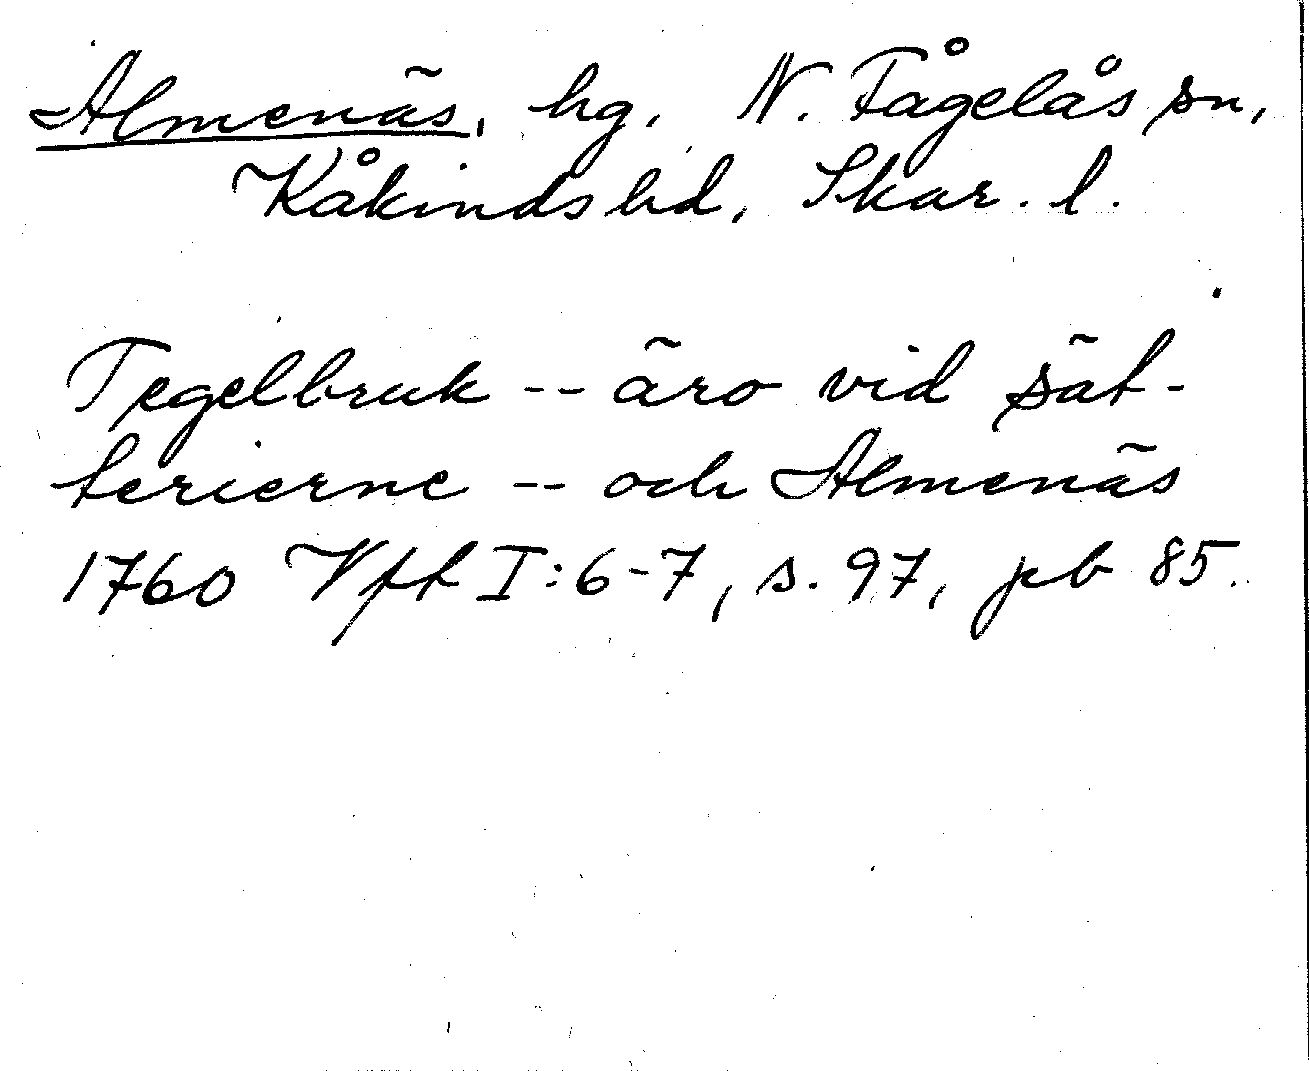 Almenäs, hg, N. Fågelås sn,
Kåkinds hd, Skar. l.
Tegelbruk -- äro vid sät-
terierne -- och Almenäs
1760 Vft I:6-7, s. 97, pb 85.